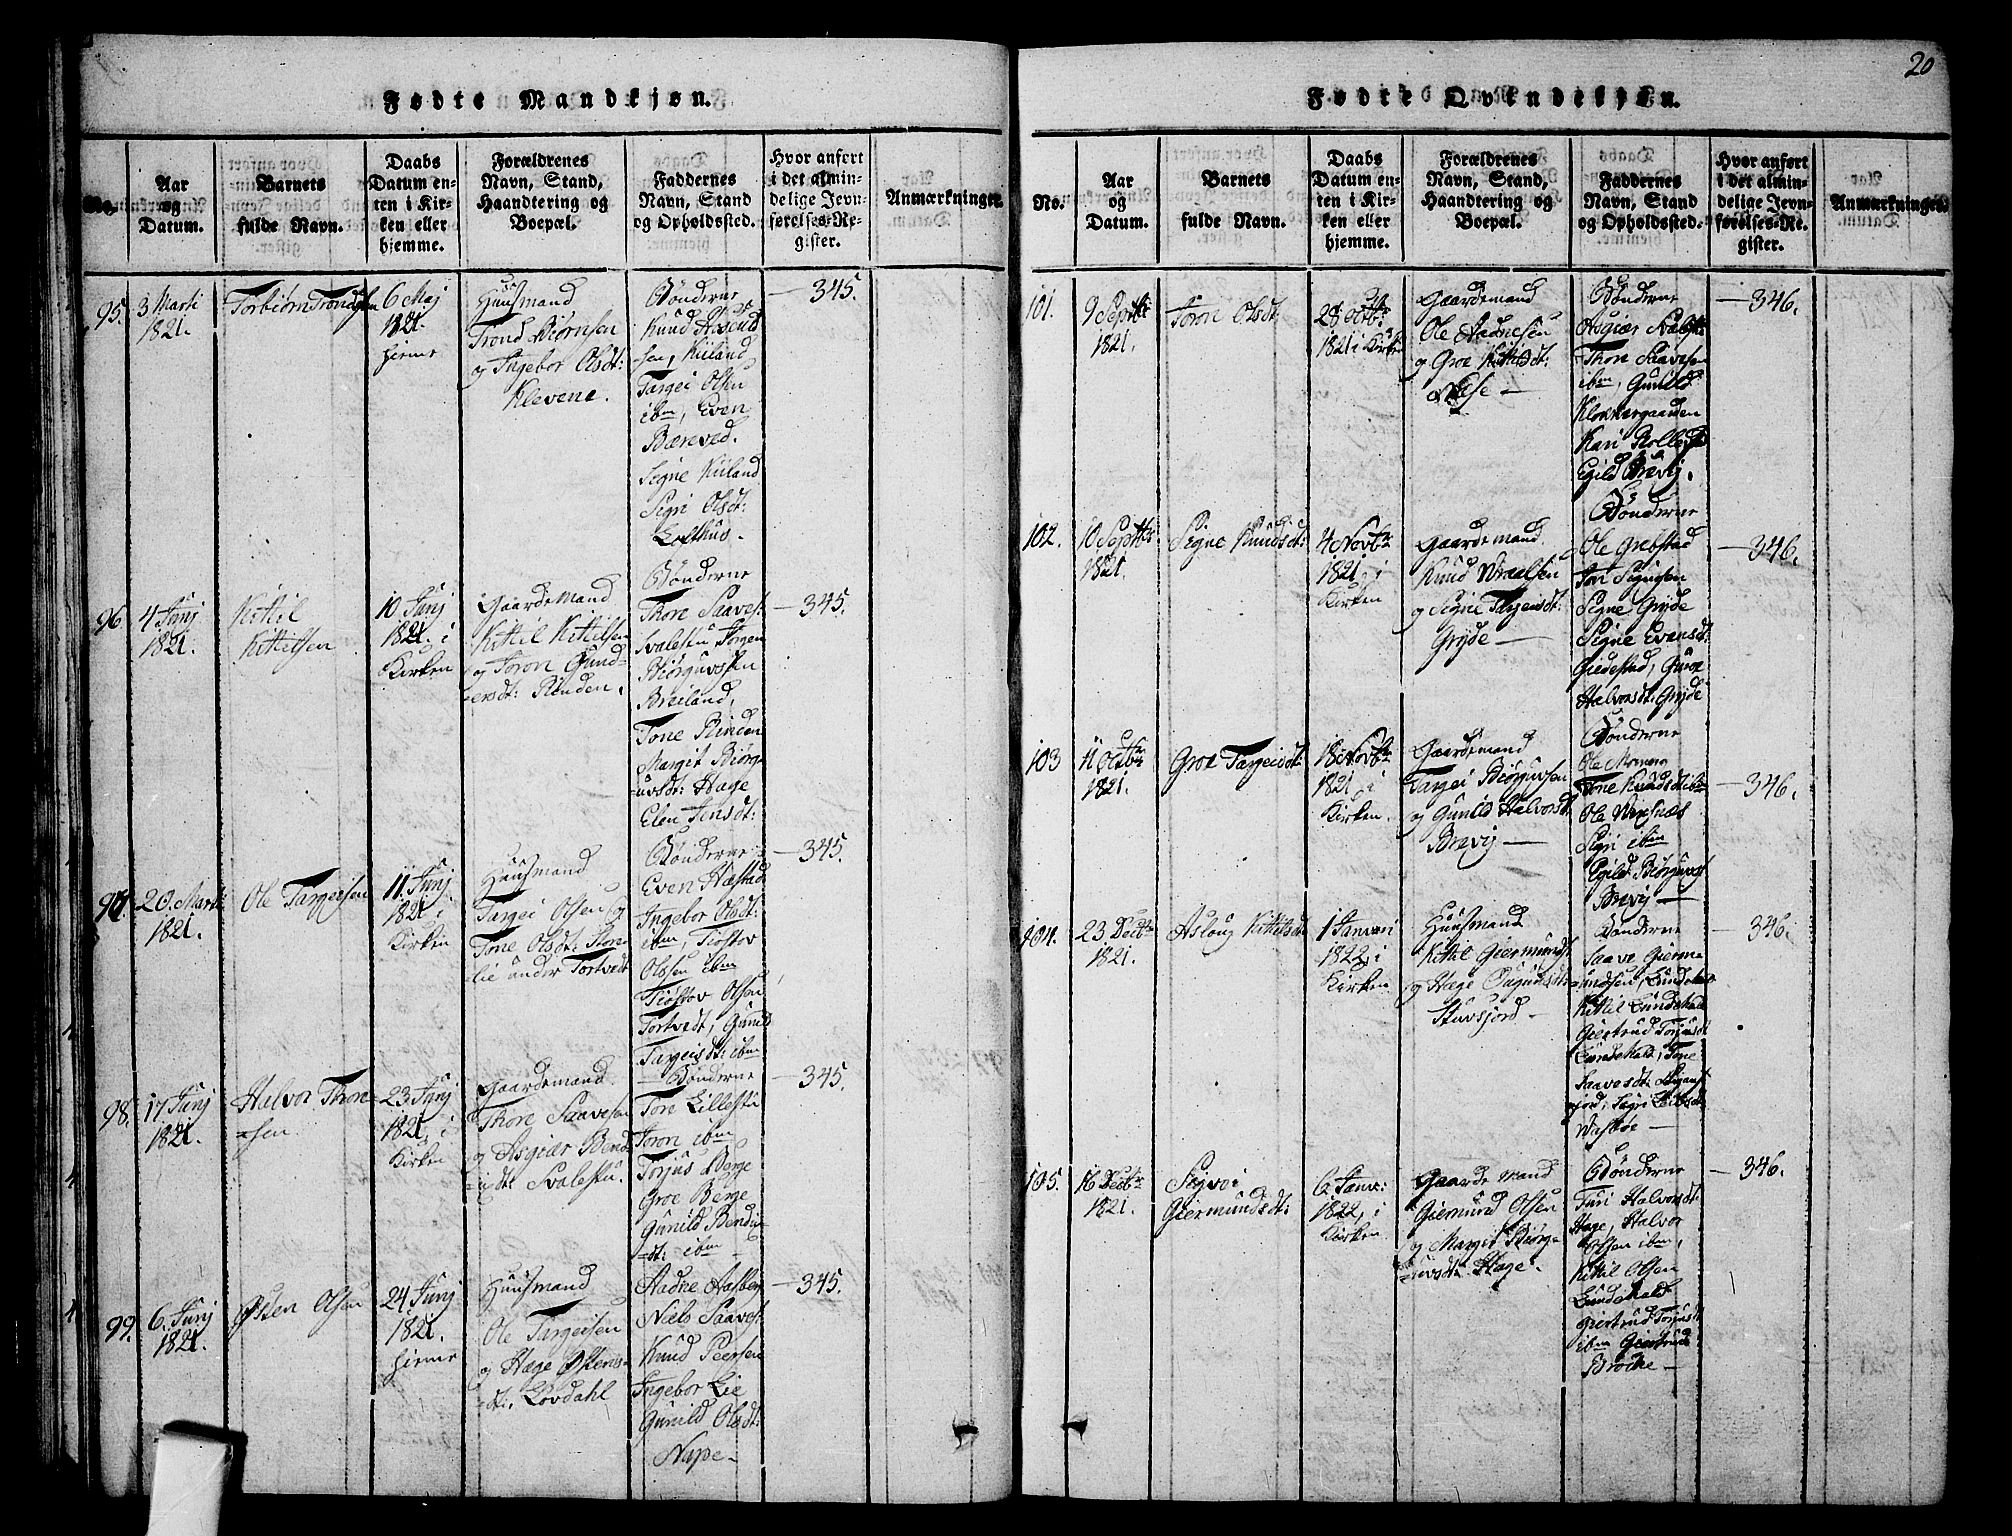 20
Fødte Mandkjøn.
No.
Aar
og
Datum.
Barnets
fulde Navn.
Daabs
Datum en-
ten i Kir-
ken eller
hjemme.
Forældrenes
Navn, Stand,
Haandtering og
Boepæl.
Faddernes
Navn, Stand
og Opholdssted.
Hvor anført
i det almin-
delige Jevn-
førelses-Re-
gister.
Anmærkninger.
95.
3 Marti
1821.
Torbiørn Trondsen
6 Maj
1821.
hieme
Huusmand
Trond Biørnsen
og Ingebor Olsdt:
Klevene.
Bønderne
Knud
sen, Kiiland
Targei Olsen
ibm, Even
Bereved.
Signe Kiiland
Sigri Olsdt:
Lofthus
345.
96
4 Junj
1821.
Kittil
Kittelsen
10 Junj
1821. i
Kirken
Gaardemand
Kittil Kittilsen
og Toron Gund-
ersdt: Rinden.
Bønderne
Thore Saaves:
Svalestu Jørgen
Biørguvsen
Breiland,
Tone Rinden
Margit Biørg-
uvsdt: Hage
Elen Jensdt:
345.
97.
20. Marti
1821.
Ole Targeisen
11. Junj
1821 i
Kirken
Huusmand
Targei Olsen og
Tone Olsdt:
lie under Tortvedt
Bønderne
Even Hæstad
Ingebor Olsdt:
ibm, Tiøstov
Olssen ibm
Tiøstov Olsen
Tortvedt, Gunild
Targeisdt: ibm
345.
98.
17 Junj
1821.
Halvor Thore-
sen.
23. Junj
1821, i
Kirken
Gaardemand
Thore Saavesen
og Asgiær Bend-
ixdt Svalestu.
Bønderne
Tore Lillestu
Toron ibm
Torjus Berge
Groe Berge
Gunild Bendix-
dt: ibm
345.
99.
6. Junj
1821.
Østen Olsen
24. Junj
1821.
hieme
Huusmand
Ole Targeisen
og Hæge Østens-
dt: Lovdahl
Aadne
Niels Saaves:
Knud Peersen
Ingebor Lie
Gunild Olsdt:
Nape
345.
Fødte Qvindekjøn.
No.
Aar
og
Datum.
Barnets
fulde Navn.
Daabs
Datum en-
ten i Kir-
ken eller
hjemme.
Forældrenes
Navn, Stand,
Haandtering og
Boepæl.
Faddernes
Navn, Stand
og Opholdssted.
Hvor anført
i det almin-
delige Jevn-
førelses-Re-
gister.
Anmærkninger.
101.
9 Septbr
1821.
Toron Olsdt
28 octbr:
1821 i Kirken
Gaardemand
Ole Aadnesen
og Groe Kittilsdt:
Bønderne
Asgiær
Thore Saavesen
ibm, Gunild
Klokkergaarden
Kari
Egild Brevig.
346.
102.
10 Septbr
1821.
Signe Knudsdt:
4 Novbr
1821, i
Kirken
Gaardemand
Knud Wraalsen
og Signe Targeisdt:
Gryde
Bønderne
Ole Grebstad
Jon
Signe Gryde
Signe Evensdt:
Giedestad, Guroe
Halvorsdt: Gryde
346.
103
11 Octbr
1821.
Groe Targeisdt:
18 Novbr
1821, i
Kirken.
Gaardemand
Targei Biørguvsen
og Gunild Halvorsdt
Brevig
Bønderne
Ole
Tone Knudsdt ibm
Ole
Sigri ibm
Egild Biørguvs
Brevig
346.
104.
23. Decbr
1821.
Asloug Kittilsdt
1 Januari
1822, i
Kirken
Huusmand
Kittil Giermunds
og Hæge
Stuvsjord
Bønderne
Saave Gierm-
undsen, Lundekald
Kittil Lundekald
Giertrud Torjusdt
Lundekald, Tone
Saavesdt:
jord, Sigri
346.
105.
16 Decbr
1821.
Sigvor
Giermundsdt:
6. Janv:
1822, i
Kirken
Gaardemand
Giermund Olsen
og Margit Biørg-
uvsdt: Hage
Bønderne
Juri Halvorsdt:
Hage, Halvor
Olsen ibm,
Kittil Olsen
Lundekald
Giertrud Torjusdt
ibm Giertrud
Broche
346.